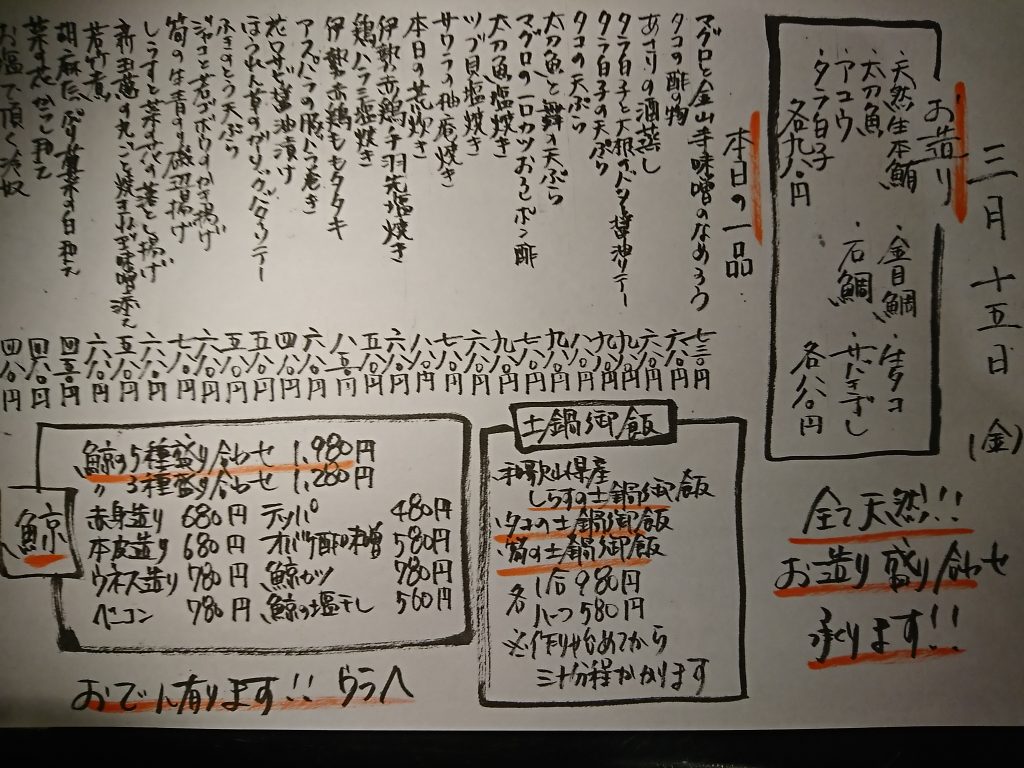 三月十五日(金)
お造り
・天然生本鮪
・太刀魚
・アコウ
・タラ白子
各九八〇円
・金目鯛
・石鯛
・生タコ
各八八〇円
全て天然!!
お造り盛り合わせ
承ります!!
本日の一品
マグロと金山寺味噌のなめろう 七三〇円
タコの酢の物 六八〇円
あさりの酒蒸し 六八〇円
タラ白子と大根のバター醤油ソテー 九八〇円
タラ白子の天ぷら 九八〇円
タコの天ぷら 八八〇円
太刀魚と舞茸天ぷら 九八〇円
マグロの一口カツおろしポン酢 七八〇円
太刀魚塩焼き 九八〇円
ツブ貝塩焼き 八八〇円
サワラの柚庵焼き 七八〇円
本日の兜焼き 八八〇円
伊勢赤鶏手羽先塩焼き 六八〇円
鶏ハラミ塩焼き 五八〇円
伊勢赤鶏ももタタキ 八五〇円
アスパラの豚バラ巻き 六八〇円
花ワサビ醤油漬け 四八〇円
ほうれん草のガーリックバターソテー 五八〇円
ふきのとう天ぷら 五八〇円
ジャコと若ゴボウのかき揚げ 六八〇円
筍の生青のり磯辺揚げ 七八〇円
しらすと菜の花の落とし揚げ 六八〇円
新玉葱の丸ごと焼きねぎ味噌添え 五八〇円
若竹煮 六八〇円
四五〇円
菜の花からし和え 四八〇円
お塩で頂く冷奴 四八〇円
土鍋御飯
和歌山県産
しらすの土鍋御飯
タコの土鍋御飯
筍の土鍋御飯
各
1合 980円
ハーフ 580円
※作り始めてから
三十分程かかります
鯨
鯨の5種盛り合わせ 1,980円
〃 3種盛り合わせ 1,280円
赤身造り 680円 テッパ 480円
本皮造り 680円 オバケ酢味噌 580円
ウネス造り 780円 鯨カツ 780円
ベーコン 780円 鯨の塩干し 560円
おでん有ります!! ウラへ